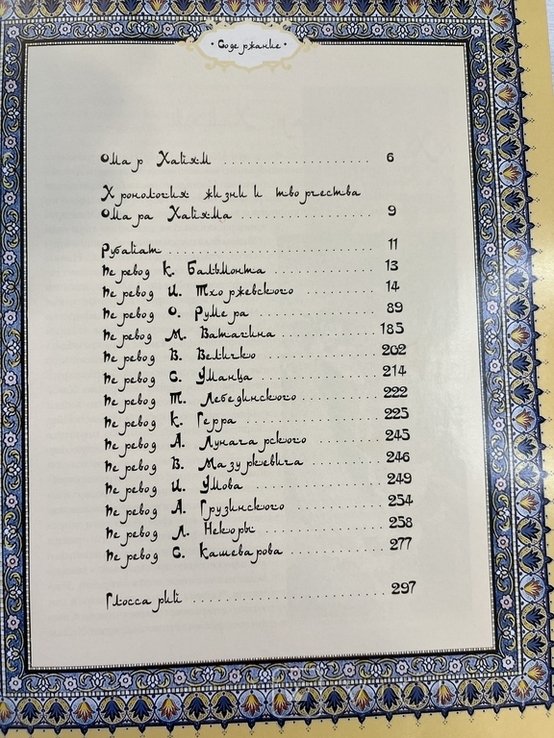 Содержание
Омар Хайям 6
Хронология жизни и творчества
Омара Хайяма 9
Рубайат 11
Перевод К. Бальмонта 13
Перевод И. Тхоржевского 14
Перевод О. Румера 89
Перевод М. Ватагина 185
Перевод В. Величко 202
Перевод С. Уманца 214
Перевод Т. Лебединского 222
Перевод К. Герра 225
Перевод А. Луначарского 245
Перевод В. Мазуркевича 246
Перевод И. Умова 249
Перевод А. Грузинского 254
Перевод Л. Некоры 258
Перевод С. Кашеварова 277
Глоссарий 297